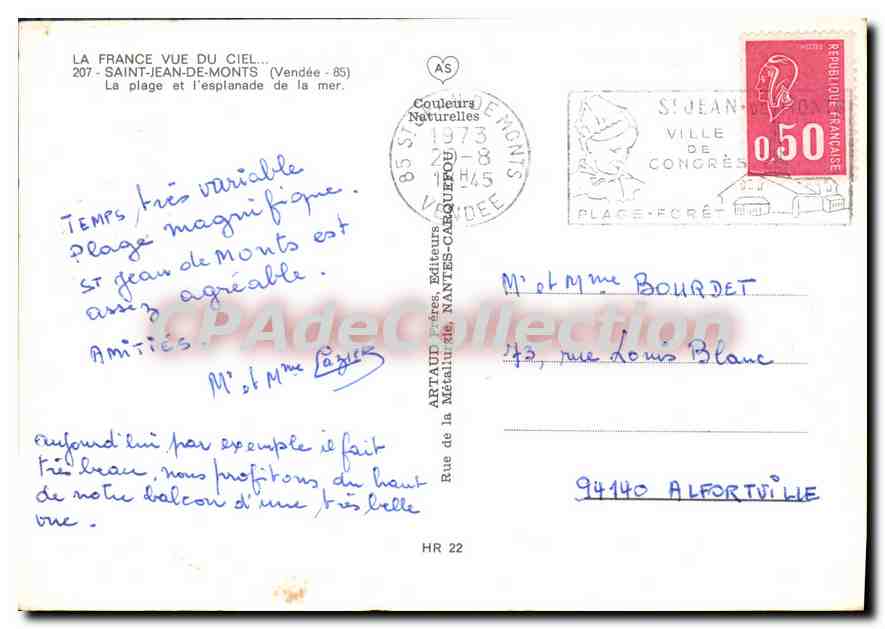 LA FRANCE VUE DU CIEL...
207 - SAINT-JEAN-DE-MONTS (Vendée - 85)
La plage et l'esplanade de la mer.
AS
Couleurs
Naturelles
TEMPS très variable
Plage magnifique.
St Jean de Monts est
assez agréable.
AMITIÉS.
Mr et Mme
aujourd'hui par exemple il fait
très beau, nous profitons du haut
de notre balcon d'une très belle
vue.
ARTAUD Frères, Editeurs
Rue de la Métallurgie, NANTES-CARQUEFOU
HR 22
85 ST JEAN DE MONTS
1973
-8
45
VENDEE
ST JEAN-DE-MONTS
VILLE
DE
CONGRÈS
PLAGE-FORÊT
RÉPUBLIQUE FRANÇAISE
0,50
Mr et Mme BOURDET
73, rue Louis Blanc
94140 ALFORTVILLE
CPAdeCollection